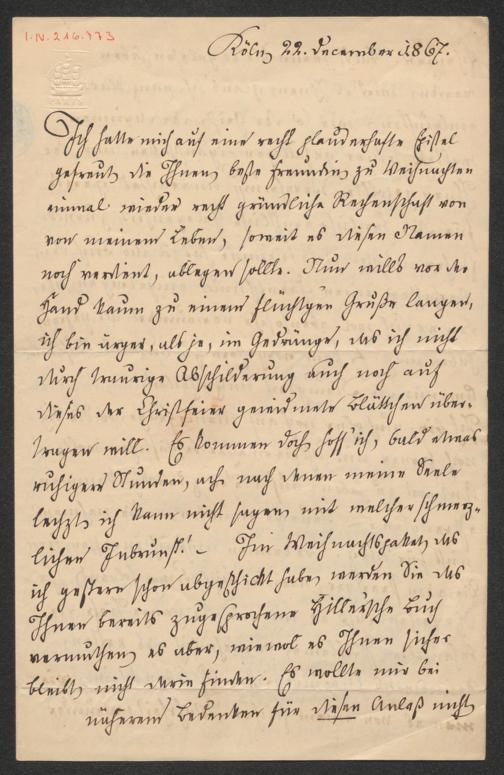 I.N. 216.973
Köln, 22. December 1867.
Ich hatte mich auf eine recht plauderhafte Epistel
gefreut, die Ihnen, beste Freundin, zu Weihnachten
einmal wieder recht gründliche Rechenschaft von
von meinem Leben, soweit es diesen Namen
noch verdient, ablegen sollte. Nun will's vor der
Hand kaum zu einem flüchtgen Gruße langen,
ich bin ärger, als je, im Gedränge, das ich nicht
durch traurige Abschilderung auch noch auf
dieses der Christfeier gewidmete Blättchen über-
tragen will. Es kommen doch, hoff' ich, bald etwas
ruhigere Stunden, ach, nach denen meine Seele
lechzt, ich kann nicht sagen, mit welcher schmerz-
lichen Inbrunst! – Im Weihnachtspaket, das
ich gestern schon abgeschickt habe, werden Sie das
Ihnen bereits zugesprochene Hiller'sche Buch
vermuthen, es aber, wiewol es Ihnen sicher
bleibt, nicht darin finden. Es wollte mir bei
näherem Bedenken für diesen Anlaß nicht